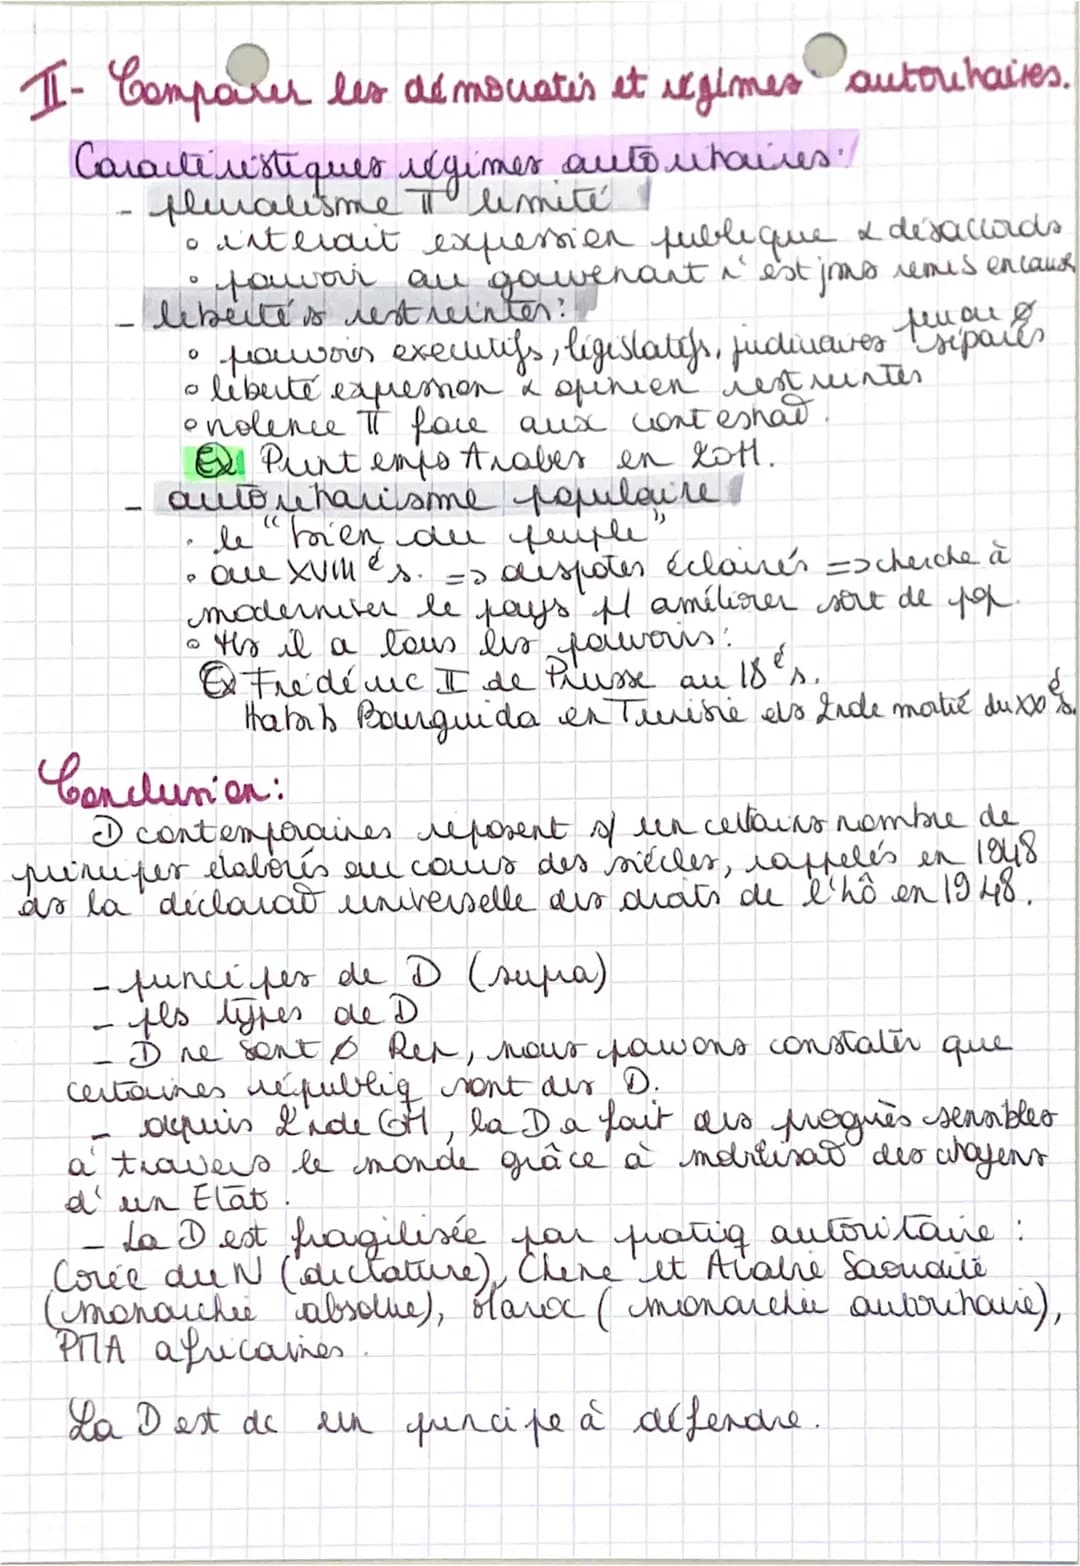 II- Comparer les démocraties et régimes autoritaires.
Caractéristiques régimes autoritaires:
- pluralisme π limité
◦ interdit expression publique & désaccords
◦ pouvoir au gouvernant n'est jms remis en cause
- libertés restreintes:
◦ pouvoirs executifs, législatifs, judiciaires peu ou ∅ séparés
◦ liberté expression & opinion restreintes
◦ violence π face aux contestat°.
Ex: Printemps Arabes en 2011.
- autoritarisme populaire
• le "bien du peuple"
◦ au XVIII é s. => despotes éclairés => cherche à
moderniser le pays pr améliorer sort de pop.
◦ Ms il a tous les pouvoirs:
Ex Frédéric II de Prusse au 18 é s.
Habib Bourguida en Tunisie ds 2nde moitié du XX é s.
Conclusion:
D contemporaines reposent s/ un certains nombre de
principes élaborés au cours des siècles, rappelés en 1948
ds la déclarat° universelle des droits de l'hô en 1948.
- principes de D (supra)
- pls types de D
- D ne sont ∅ Rep, nous pouvons constater que
certaines républiq sont des D.
- depuis 2nde GM, la D a fait des progrès sensibles
à travers le monde grâce à mobilisat° des citoyens
d'un Etat.
- La D est fragilisée par pratiq autoritaire :
Corée du N (dictature), Chine et Arabie Saoudite
(monarchie absolue), Maroc (monarchie autoritaire),
PMA africaines.
La D est dc un principe à défendre.